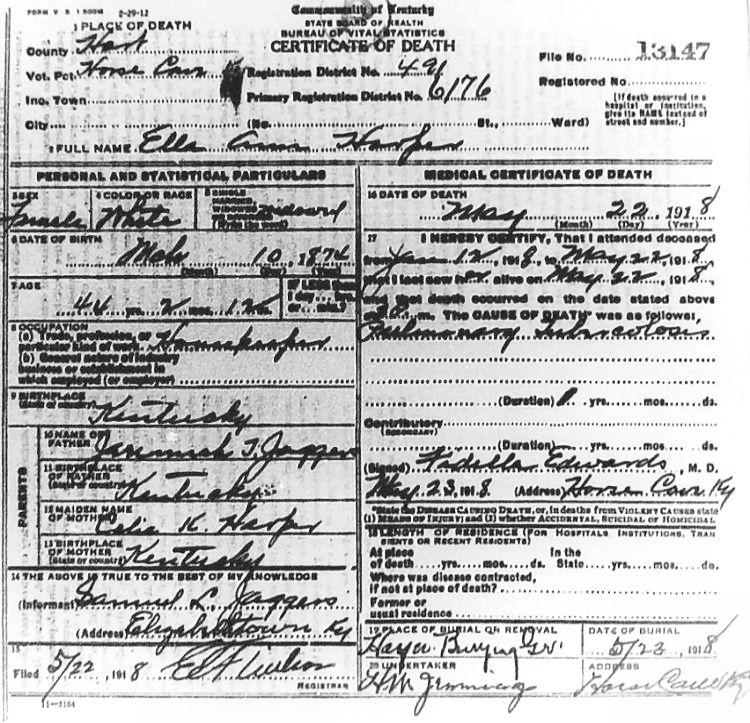 FORM V. S. 1 500M 2-29-12
Commonwealth of Kentucky
STATE BOARD OF HEALTH
BUREAU OF VITAL STATISTICS
CERTIFICATE OF DEATH
1 PLACE OF DEATH
County Hart
Vot. Pct. Horse Cave
Inc. Town
City
Registration District No. 491
Primary Registration District No. 6176
(No. St., Ward)
File No. 13147
Registered No.
[If death occurred in a
hospital or institution,
give its NAME instead of
street and number.]
2 FULL NAME Ella Ann Harper
PERSONAL AND STATISTICAL PARTICULARS
3 SEX
Female
4 COLOR OR RACE
White
5 SINGLE
MARRIED
WIDOWED
OR DIVORCED
(Write the word)
Widowed
6 DATE OF BIRTH
Mch 10, 1874
(Month) (Day) (Year)
7 AGE
44 yrs. 2 mos. 12 ds.
IF LESS than
1 day ... hrs.
or ... min.?
8 OCCUPATION
(a) Trade, profession, or
particular kind of work Housekeeper
(b) General nature of industry
business or establishment in
which employed (or employer)
9 BIRTHPLACE
(State or country)
Kentucky
PARENTS
10 NAME OF
FATHER Jeremiah T. Jaggers
11 BIRTHPLACE
OF FATHER
(State or country) Kentucky
12 MAIDEN NAME
OF MOTHER Celia K. Harper
13 BIRTHPLACE
OF MOTHER
(State or country) Kentucky
14 THE ABOVE IS TRUE TO THE BEST OF MY KNOWLEDGE
(Informant) Samuel L. Jaggers
(Address) Elizabethtown Ky
15
Filed 5/22, 1918
REGISTRAR
11-3184
MEDICAL CERTIFICATE OF DEATH
16 DATE OF DEATH
May 22, 1918
(Month) (Day) (Year)
17 I HEREBY CERTIFY, That I attended deceased
from Jan 12, 1918, to May 22, 1918,
that I last saw her alive on May 22, 1918,
and that death occurred on the date stated above
at m. The CAUSE OF DEATH was as follows:
Pulmonary Tubercolosis
(Duration) yrs. mos. ds.
Contributory
(SECONDARY)
(Duration) yrs. mos. ds.
(Signed) Edwards, M. D.
May 23, 1918 (Address) Horse Cave Ky
*State the DISEASE CAUSING DEATH, or, in deaths from VIOLENT CAUSES state
(1) MEANS OF INJURY; and (2) whether ACCIDENTAL, SUICIDAL OR HOMICIDAL
18 LENGTH OF RESIDENCE (FOR HOSPITALS, INSTITUTIONS, TRAN
SIENTS OR RECENT RESIDENTS)
At place In the
of death yrs. mos. ds. State yrs. mos. ds.
Where was disease contracted,
if not at place of death?
Former or
usual residence
19 PLACE OF BURIAL OR REMOVAL
Burying Gr
DATE OF BURIAL
5/23, 1918
20 UNDERTAKER
H. M. Jenning
ADDRESS
Horse Cave Ky